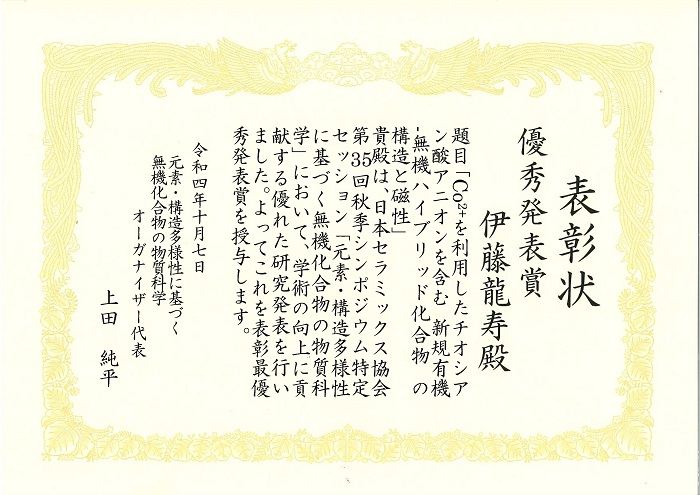 表彰状
優秀発表賞
伊藤龍寿殿
題目「Co²⁺を利用したチオシア
ン酸アニオンを含む 新規有機
-無機ハイブリッド化合物 の
構造と磁性」
貴殿は、日本セラミックス協会
第35回秋季シンポジウム特定
セッション「元素・構造多様性
に基づく無機化合物の物質科
学」において、学術の向上に貢
献する優れた研究発表を行い
ました。よってこれを表彰最優
秀発表賞を授与します。
令和四年十月七日
元素・構造多様性に基づく
無機化合物の物質科学
オーガナイザー代表
上田 純平